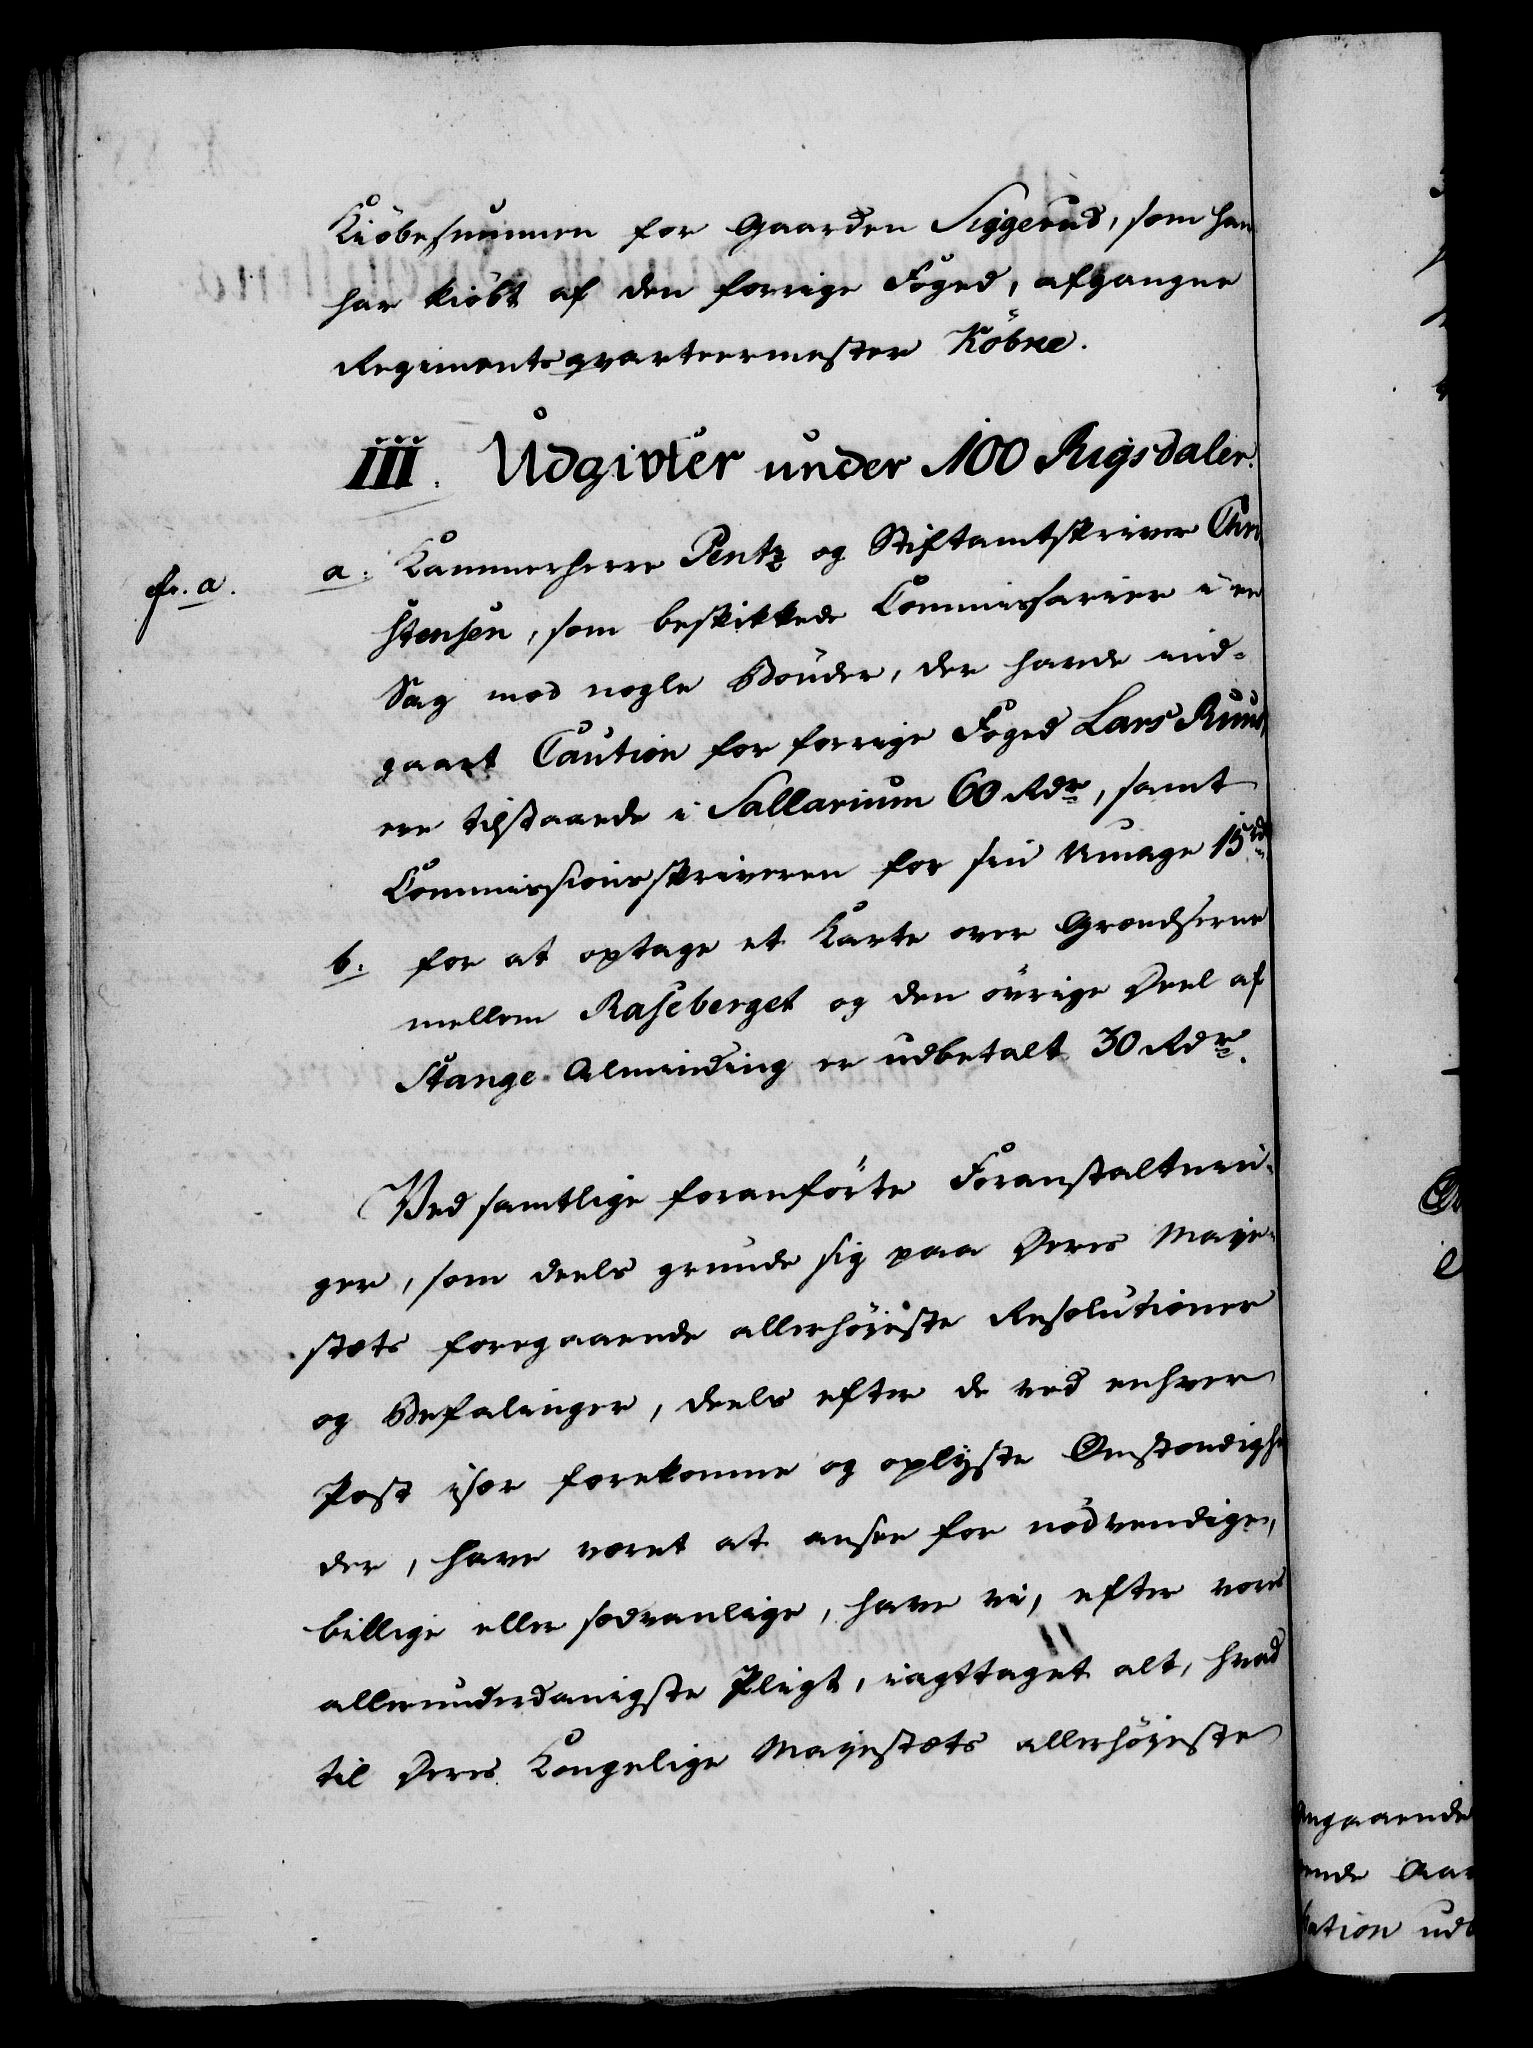 Kiöbesummen for Gaarden Siggerud, som han
har kiöbt af den forrige Foged, afgangne
Regimentsqvarteermester Köbke.
III. Udgivter under 100 Rigsdaler.
fr. a.
a. Kammerherre Pentz og Stiftamtskriver Chri
stensen, som beskikkede Commissarier i en
Sag mod nogle Bönder, der havde ind-
gaaet Caution for forrige Foged Lars Ruud,
ere tilstaaede i Sallarium 60 Rdr, samt
Commissionsskriveren for sin Umage 15 rd
b. for at optage et Karte over Grændserne
mellem Raseberget og den övrige Deel af
Stange Alminding er udbetalt 30 Rdr.
Ved samtlige foranförte Foranstaltnin-
ger, som deels grunde sig paa Deres Maje-
stæts foregaaende allerhöjeste Resolutioner
og Befalinger, deels efter de ved enhver
Post især forekomne og oplyste Omstændighe
der, have været at ansee for nödvendige,
billige eller sædvanlige, have vi, efter vores
allerunderdanigste Pligt, iagttaget alt, hvad
til Deres Kongelige Majestæts allerhöjeste
ngaaende
ende Aar
ation udb